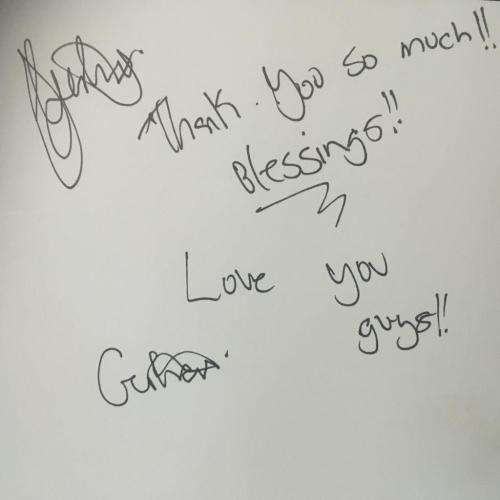 Thank. You so much!!
Blessings!!
Love you
guys!!